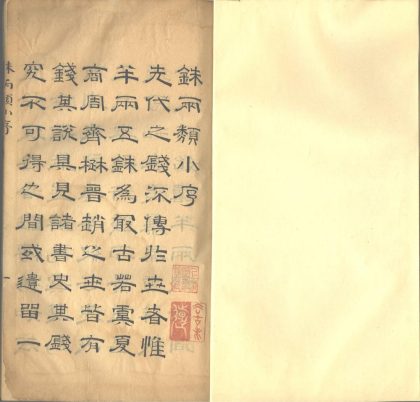 銖兩類小序
先代之錢傳於世者惟
半兩五銖為最古若虞夏
商周齊楚晉趙之世皆有
錢其說具見諸書史其錢
究不可得之間或遺留一
銖兩類小序
一